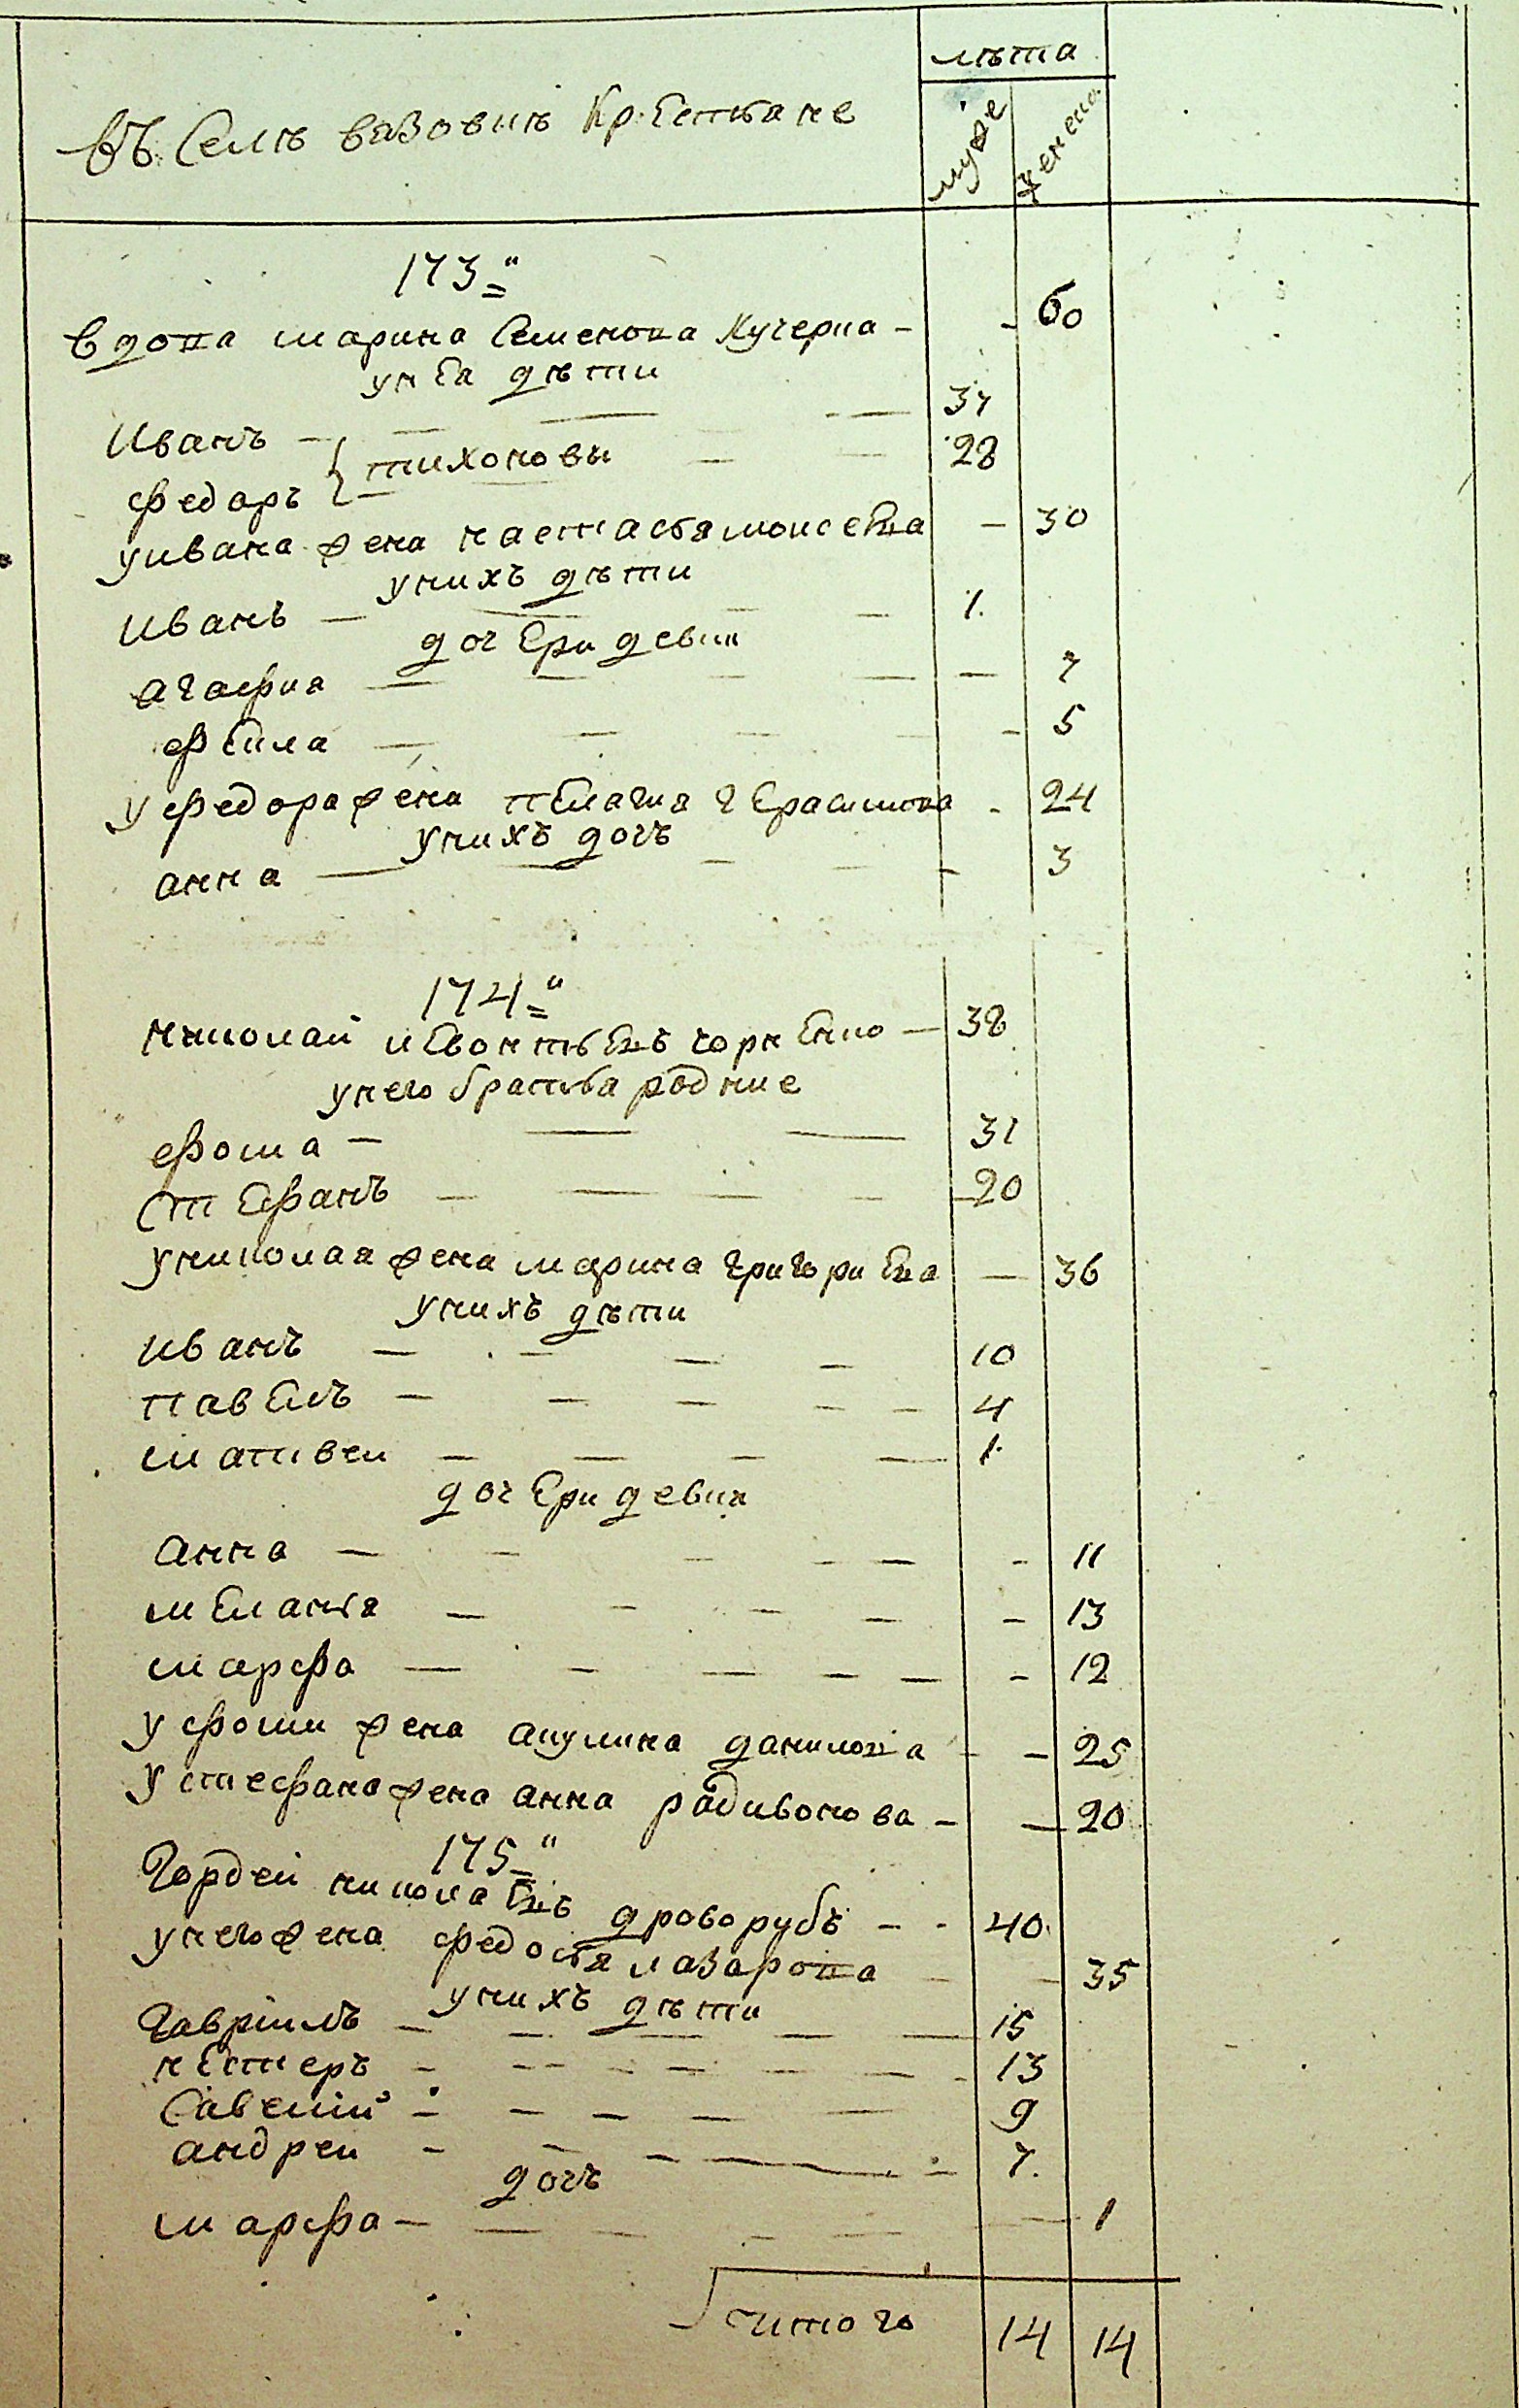 лѣта
Въ Селѣ вязовкѣ Крестьяне
муже
женска
173
вдова марина Семенова Кучерка - - 60
унея дѣти
Иванъ - 37
федоръ } тихоновы - 28
уивана жена настасья моисеева - 30
унихъ дѣти
иванъ - 1.
дочери девки
агафия - 7
фекла - 5
уфедора жена пелагия герасимова - 24
унихъ дочъ
анна - 3
174
николай левонтьевъ чорненко - 38
унего братья родние
фома - 31
Стефанъ - 20
униколая жена марина григориева - 36
унихъ дѣти
иванъ - 10
павелъ - 4
матвеи - 1.
дочери девки
анна - 11
меланья - 13
марфа - 12
уфоми жена акулина данилова - 25
устефана жена анна радивонова - 20
175
Гордей николаевъ дроворубъ - - 40
унего жена федосья лазарова - 35
унихъ дѣти
Гавріилъ - 15
нестеръ - 13
Савелий - 9
андреи - 7.
дочъ
марфа - 1
итого 14 14